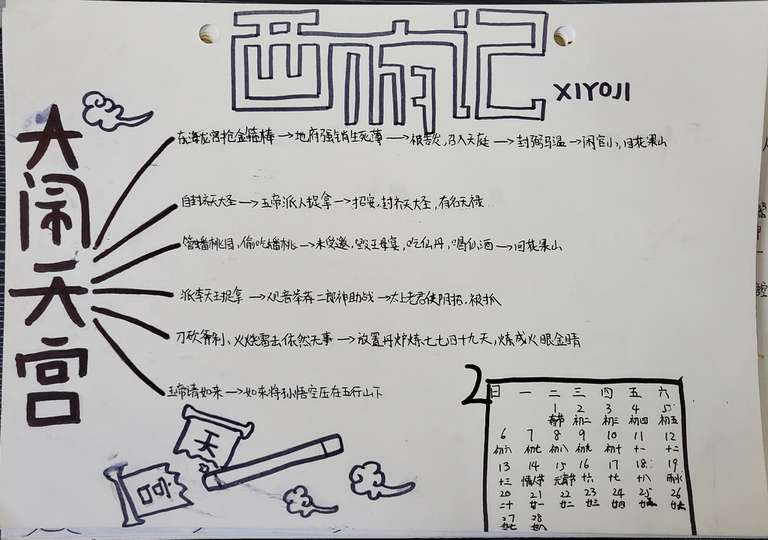 西游记
XIYOJI
大闹天宫
东海龙宫抢金箍棒→地府强销生死薄→被告发,召入天庭→封弼马温→闹官小,回花果山
自封齐天大圣→玉帝派人捉拿→招安,封齐天大圣,有名无禄
管蟠桃园,偷吃蟠桃→未受邀,毁王母宴,吃仙丹,喝仙酒→回花果山
派李天王捉拿→观音举荐二郎神助战→太上老君使阴招,被抓
刀砍斧剁、火烧雷击依然无事→放置丹炉炼七七四十九天,炼成火眼金睛
玉帝请如来→如来将孙悟空压在五行山下
天
宫
2
日 一 二 三 四 五 六
1 2 3 4 5
春节 初二 初三 初四 初五
6 7 8 9 10 11 12
初六 初七 初八 初九 初十 十一 十二
13 14 15 16 17 18 19
十三 情人节 元宵节 十六 十七 十八 雨水
20 21 22 23 24 25 26
二十 廿一 廿二 廿三 廿四 廿五 廿六
27 28
廿七 廿八